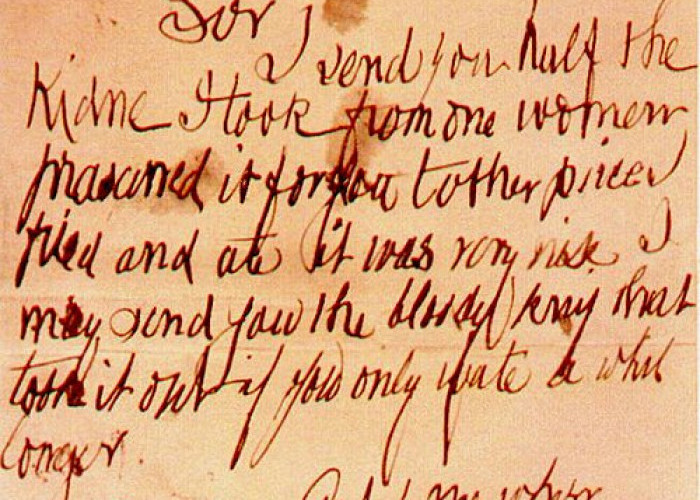 Sor
I send you half the
Kidne I took from one women
prasarved it for you tother piece I
fried and ate it was very nise I
may send you the bloody knif that
took it out if you only wate a whil
longer.
me when